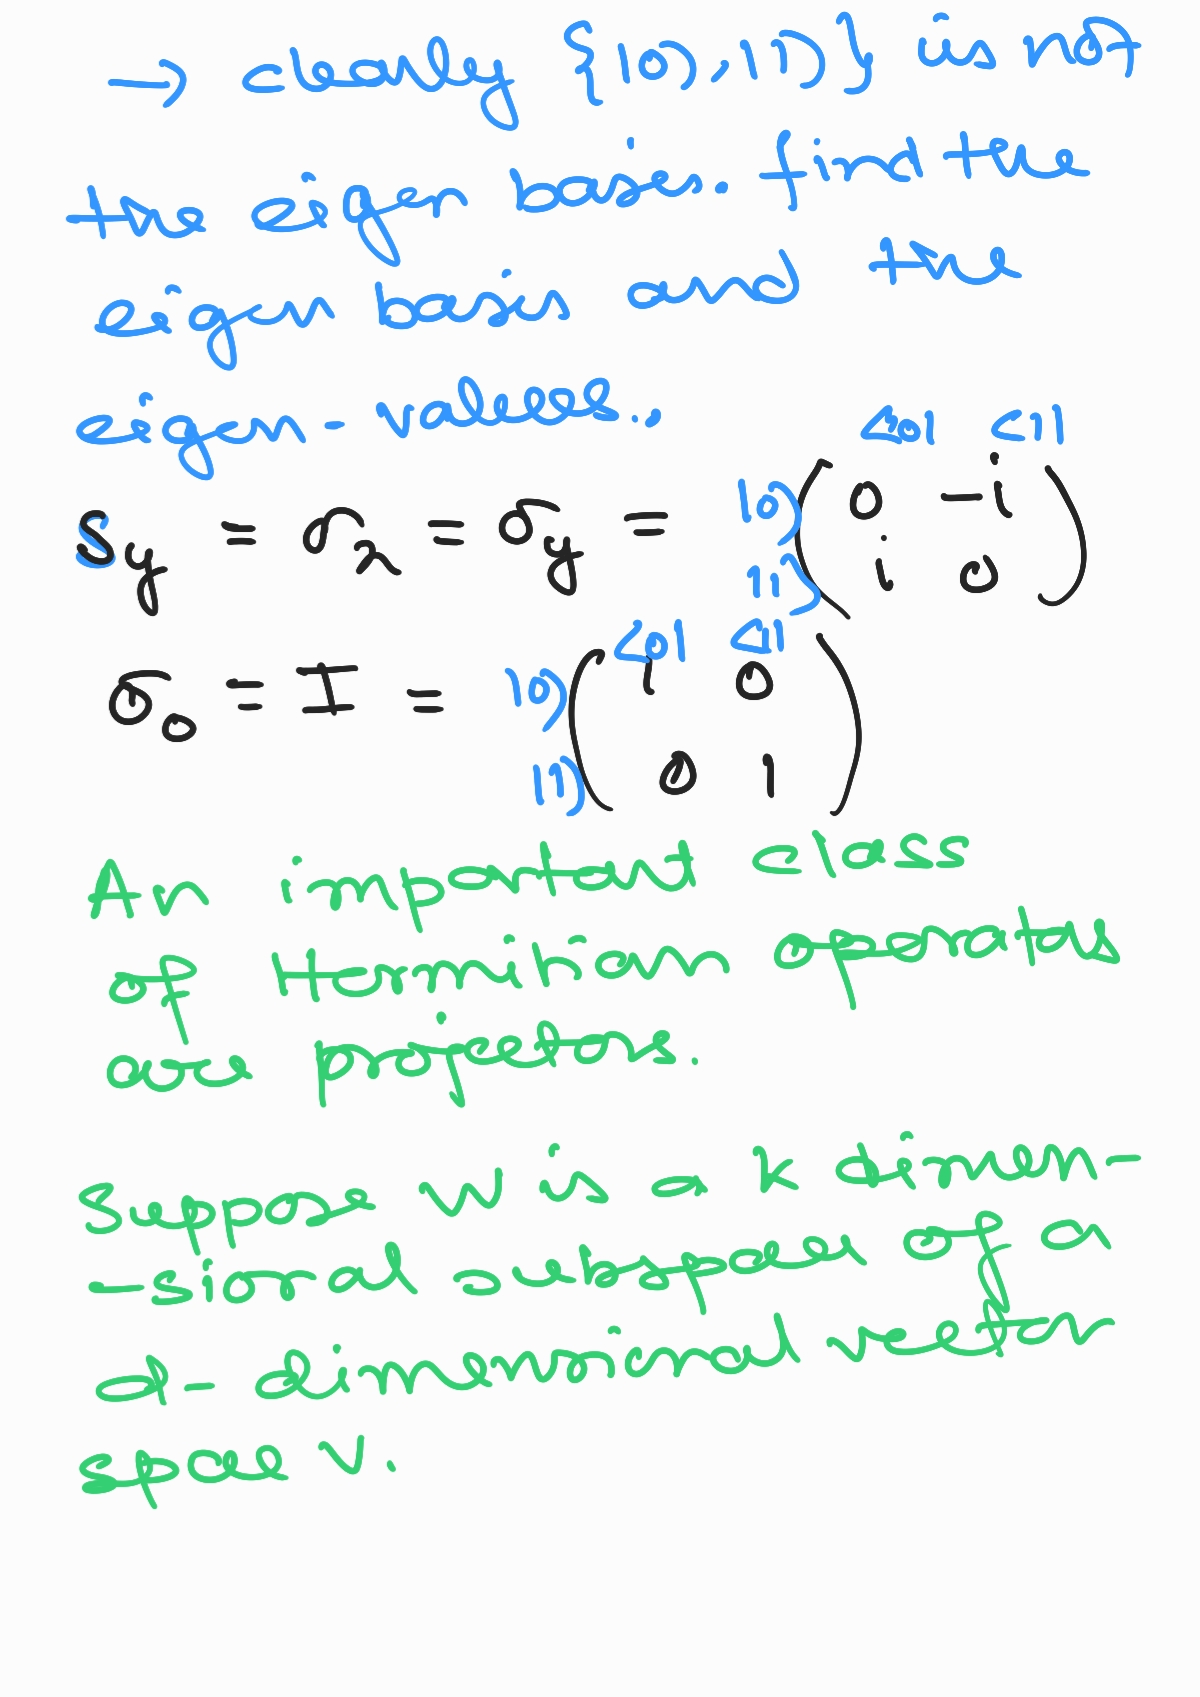 → clearly {|0⟩, |1⟩} is not
the eigen basis. find the
eigen basis and the
eigen-values.
⟨0| ⟨1|
S_y = σ_2 = σ_y = |0⟩ ( 0 -i )
|1⟩ ( i 0 )
⟨0| ⟨1|
σ_0 = I = |0⟩ ( 1 0 )
|1⟩ ( 0 1 )
An important class
of Hermitian operators
are projectors.
Suppose W is a k dimen-
-sional subspace of a
d-dimensional vector
space V.